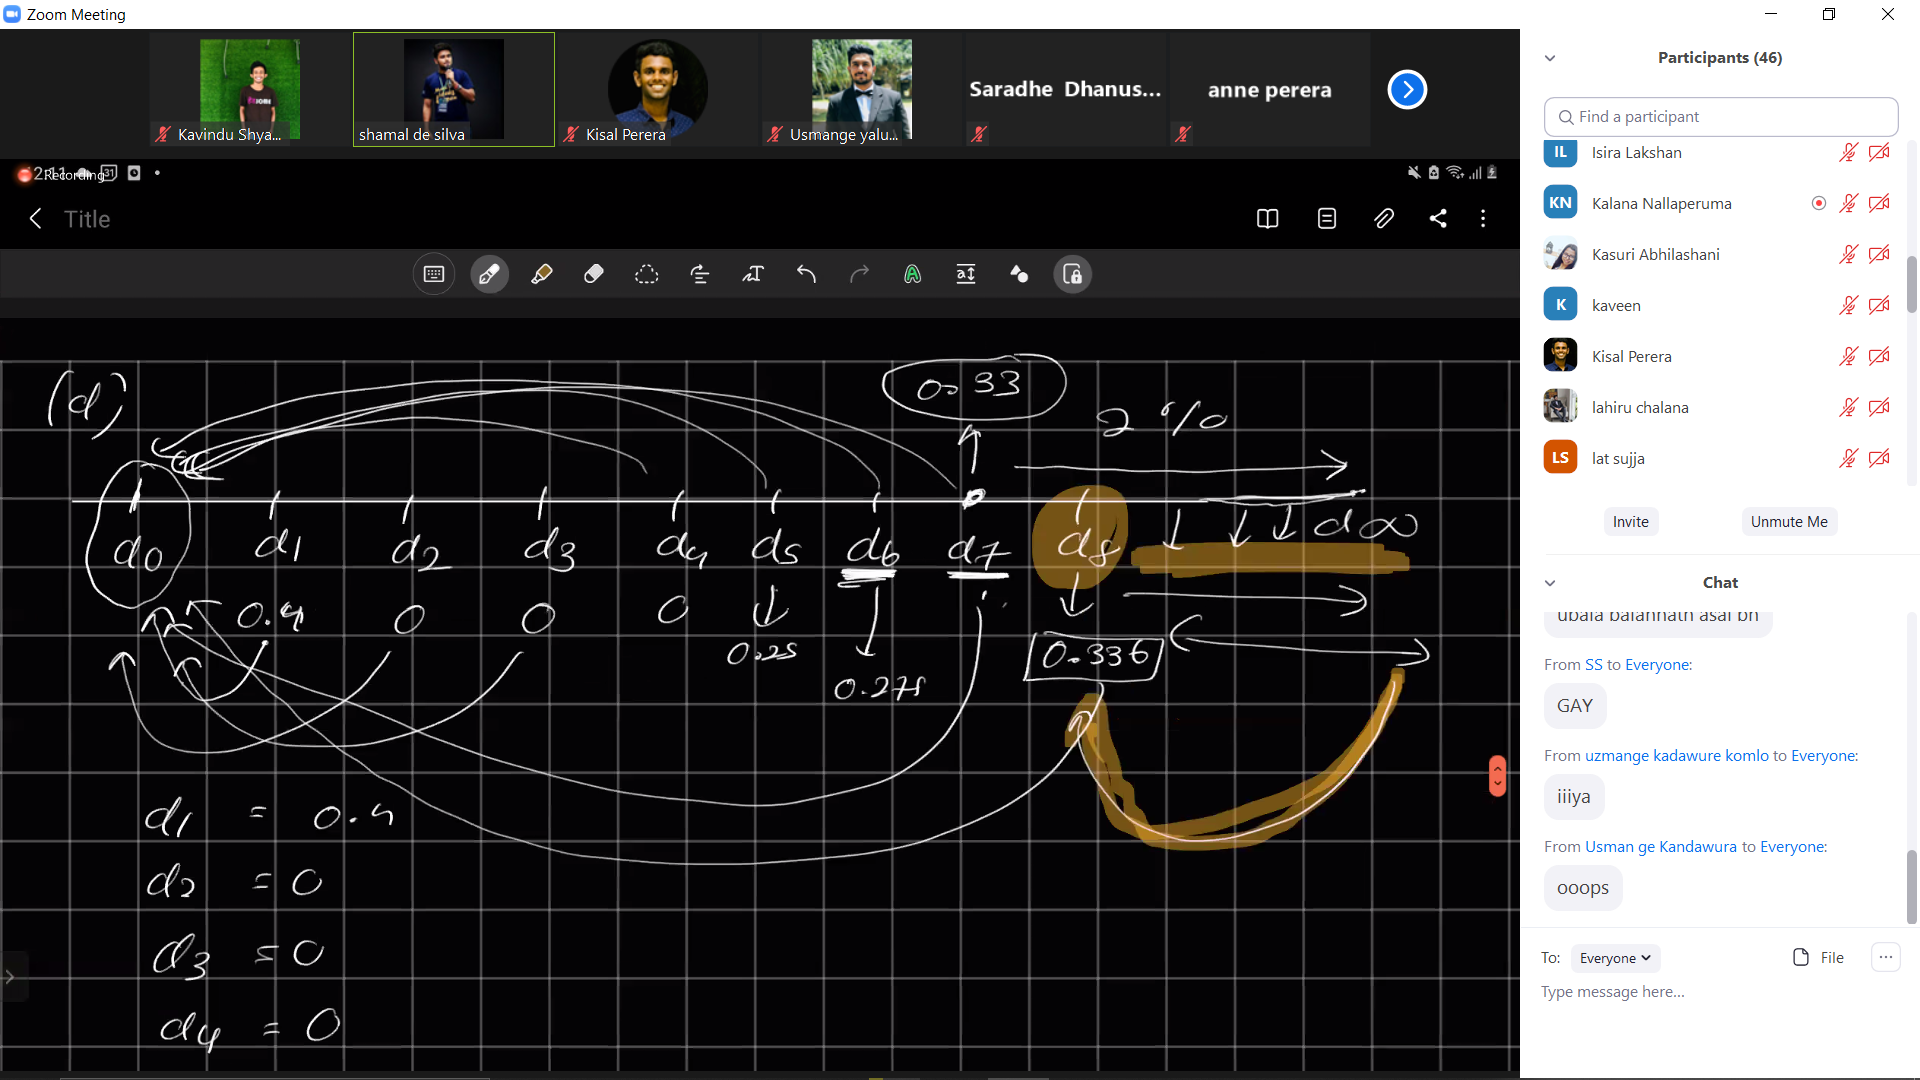 Zoom Meeting
Kavindu Shya...
shamal de silva
Kisal Perera
Usmange yalu...
Saradhe Dhanus...
anne perera
Recording
31
Title
(d)
0.33
2 %
d0 d1 d2 d3 d4 d5 d6 d7 d8 d∞
0.4 0 0 0
0.25
0.275
0.336
d1 = 0.4
d2 = 0
d3 = 0
d4 = 0
Participants (46)
Find a participant
IL Isira Lakshan
KN Kalana Nallaperuma
Kasuri Abhilashani
K kaveen
Kisal Perera
lahiru chalana
LS lat sujja
Invite
Unmute Me
Chat
ubala balannath asai bn
From SS to Everyone:
GAY
From uzmange kadawure komlo to Everyone:
iiiya
From Usman ge Kandawura to Everyone:
ooops
To: Everyone
File
Type message here...